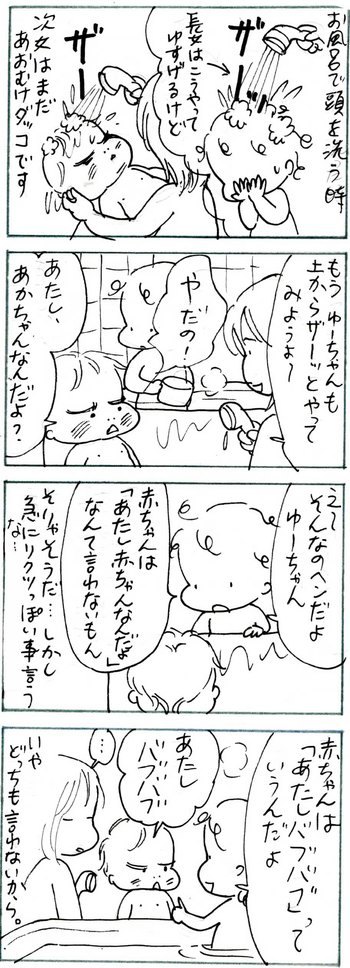 お風呂で頭を洗う時
ザー
長女はこうやって
ゆすげるけど
ザー
次女はまだ
あおむけダッコです
もうゆーちゃんも
上からザーッとやって
みようよ〜
やだの!
あたし、
あかちゃんなんだよ?
えー
そんなのヘンだよ
ゆーちゃん
赤ちゃんは
「あたし赤ちゃんなんだよ」
なんて言わないもん
そりゃそうだ…しかし
急にリクツっぽい事言う
な…
赤ちゃんは
「あたしバブバブ」って
いうんだよ
あたし
バブバブ
…
いや
どっちも言わないから。